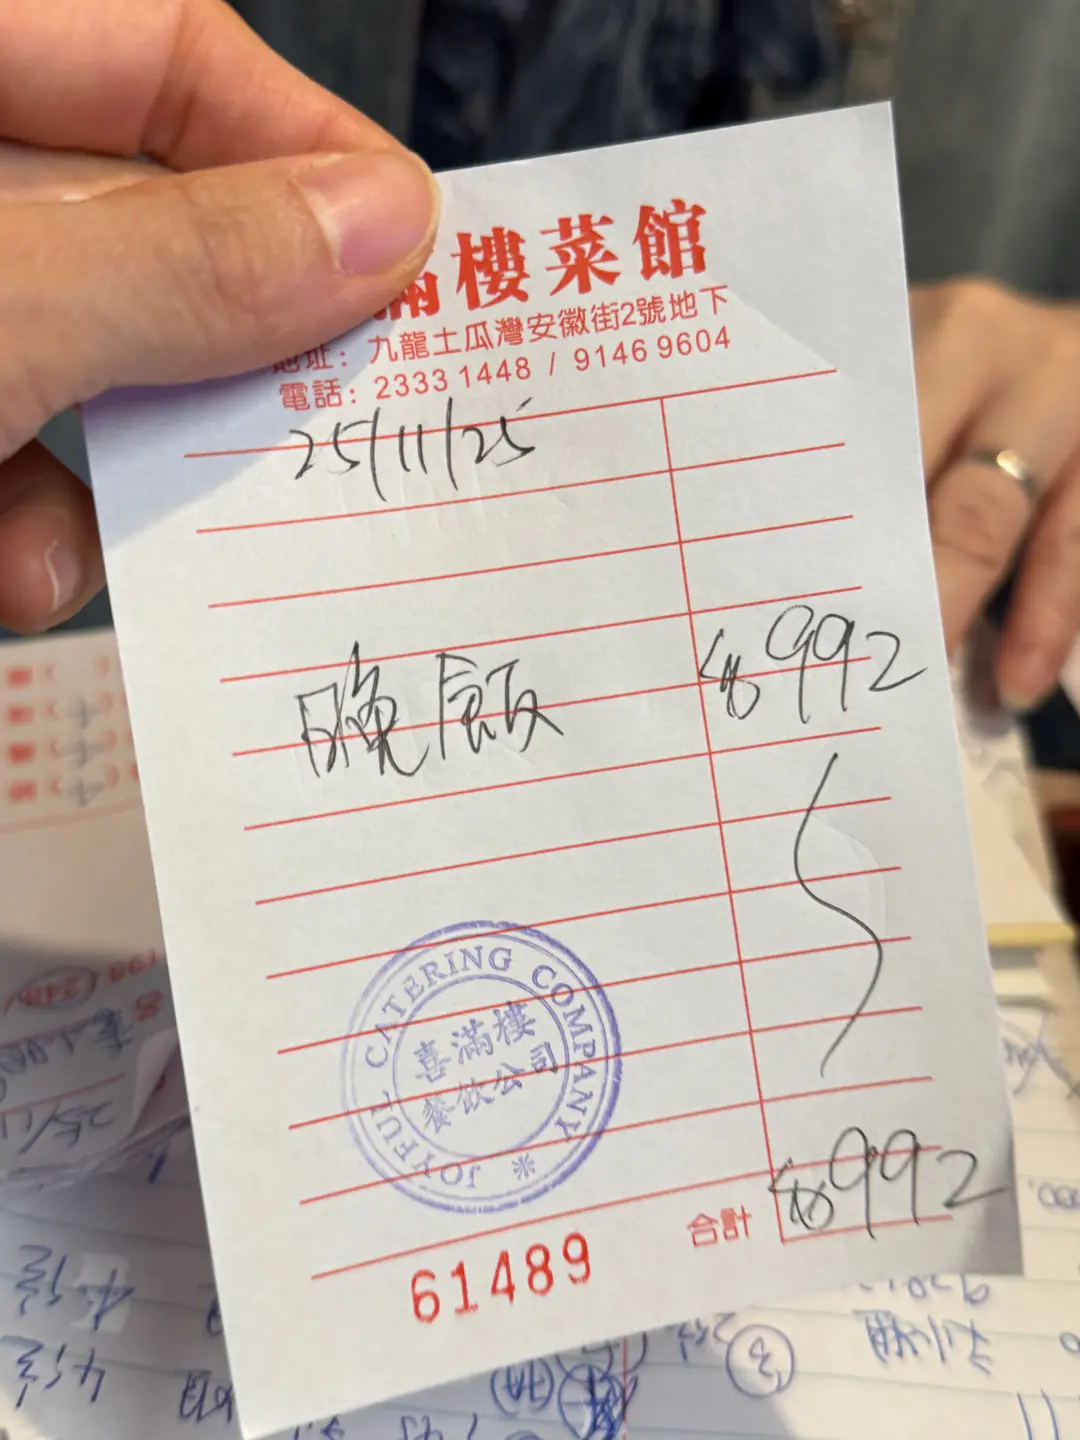 滿樓菜館
地址：九龍土瓜灣安徽街2號地下
電話：2333 1448 / 9146 9604
25/11/25
晚飯 $992
JOYFUL CATERING COMPANY
喜滿樓
餐飲公司
合計 $992
61489